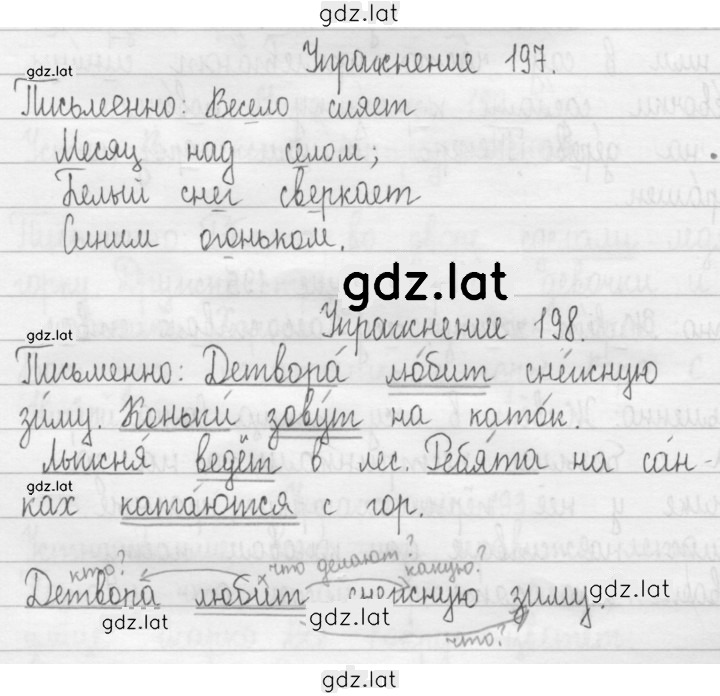 gdz.lat
Упражнение 197.
gdz.lat
Письменно: Весело сияет
Месяц над селом;
Белый снег сверкает
Синим огоньком.
gdz.lat
Упражнение 198.
gdz.lat
Письменно: Детвора́ лю́бит сне́жную
зи́му. Коньки́ зову́т на като́к.
Лыжня́ ведёт в лес. Ребя́та на са́н-
gdz.lat
ках ката́ются с гор.
кто? что делают? какую?
Детвора любит снежную зиму gdz.lat
gdz.lat gdz.lat
что?
gdz.lat